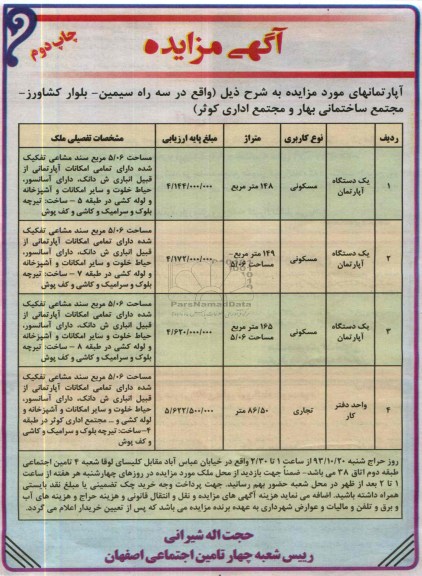 آگهی مزایده
چاپ دوم
آپارتمانهای مورد مزایده به شرح ذیل (واقع در سه راه سیمین- بلوار کشاورز-
مجتمع ساختمانی بهار و مجتمع اداری کوثر)
ردیف نوع کاربری متراژ مبلغ پایه ارزیابی مشخصات تفصیلی ملک
۱ یک دستگاه آپارتمان مسکونی ۱۴۸ متر مربع ۴/۱۴۴/۰۰۰/۰۰۰
مساحت ۵/۰۶ مربع سند مشاعی تفکیک
شده دارای تمامی امکانات آپارتمانی از
قبیل انباری ش دانک، دارای آسانسور،
حیاط خلوت و سایر امکانات و آشپزخانه
و لوله کشی در طبقه ۵ – ساخت: تیرچه
بلوک و سرامیک و کاشی و کف پوش
۲ یک دستگاه آپارتمان مسکونی ۱۴۹ متر مربع – مساحت ۵/۰۶ ۴/۱۷۲/۰۰۰/۰۰۰
مساحت ۵/۰۶ مربع سند مشاعی تفکیک
شده دارای تمامی امکانات آپارتمانی از
قبیل انباری ش دانک، دارای آسانسور،
حیاط خلوت و سایر امکانات و آشپزخانه
و لوله کشی در طبقه ۷ – ساخت: تیرچه
بلوک و سرامیک و کاشی و کف پوش
ParsNamadData
۳ یک دستگاه آپارتمان مسکونی ۱۶۵ متر مربع – مساحت ۵/۰۶ ۴/۶۲۰/۰۰۰/۰۰۰
مساحت ۵/۰۶ مربع سند مشاعی تفکیک
شده دارای تمامی امکانات آپارتمانی از
قبیل انباری ش دانک، دارای آسانسور،
حیاط خلوت و سایر امکانات و آشپزخانه
و لوله کشی در طبقه ۸ – ساخت: تیرچه
بلوک و سرامیک و کاشی و کف پوش
۴ واحد دفتر کار تجاری ۸۶/۵۰ متر ۵/۶۲۲/۵۰۰/۰۰۰
مساحت ۵/۰۶ مربع سند مشاعی تفکیک
شده دارای تمامی امکانات آپارتمانی از
قبیل انباری ش دانک، دارای آسانسور،
حیاط خلوت و سایر امکانات و آشپزخانه و
لوله کشی و ... مجتمع اداری کوثر در طبقه
۴- ساخت: تیرچه بلوک و سرامیک و کاشی
و کف پوش
روز حراج شنبه ۹۳/۱۰/۲۰ از ساعت ۱ تا ۲/۳۰ واقع در خیابان عباس آباد مقابل کلیسای لوقا شعبه ۴ تامین اجتماعی
طبقه دوم اتاق ۳۸ می باشد- ضمناً جهت بازدید از محل ملک مورد مزایده در روزهای چهارشنبه هر هفته از ساعت
۱ تا ۲ بعد از ظهر در محل شعبه حضور بهم رسانید. جهت پرداخت وجه خرید چک تضمینی یا مبلغ نقد بایستی
همراه داشته باشید. اضافه می نماید هزینه آگهی های مزایده و نقل و انتقال قانونی و هزینه حراج و هزینه های آب
و برق و تلفن و مالیات و عوارض شهرداری به عهده برنده مزایده می باشد که پس از تعیین خریدار اعلام می گردد.
حجت اله شیرانی
رییس شعبه چهار تامین اجتماعی اصفهان